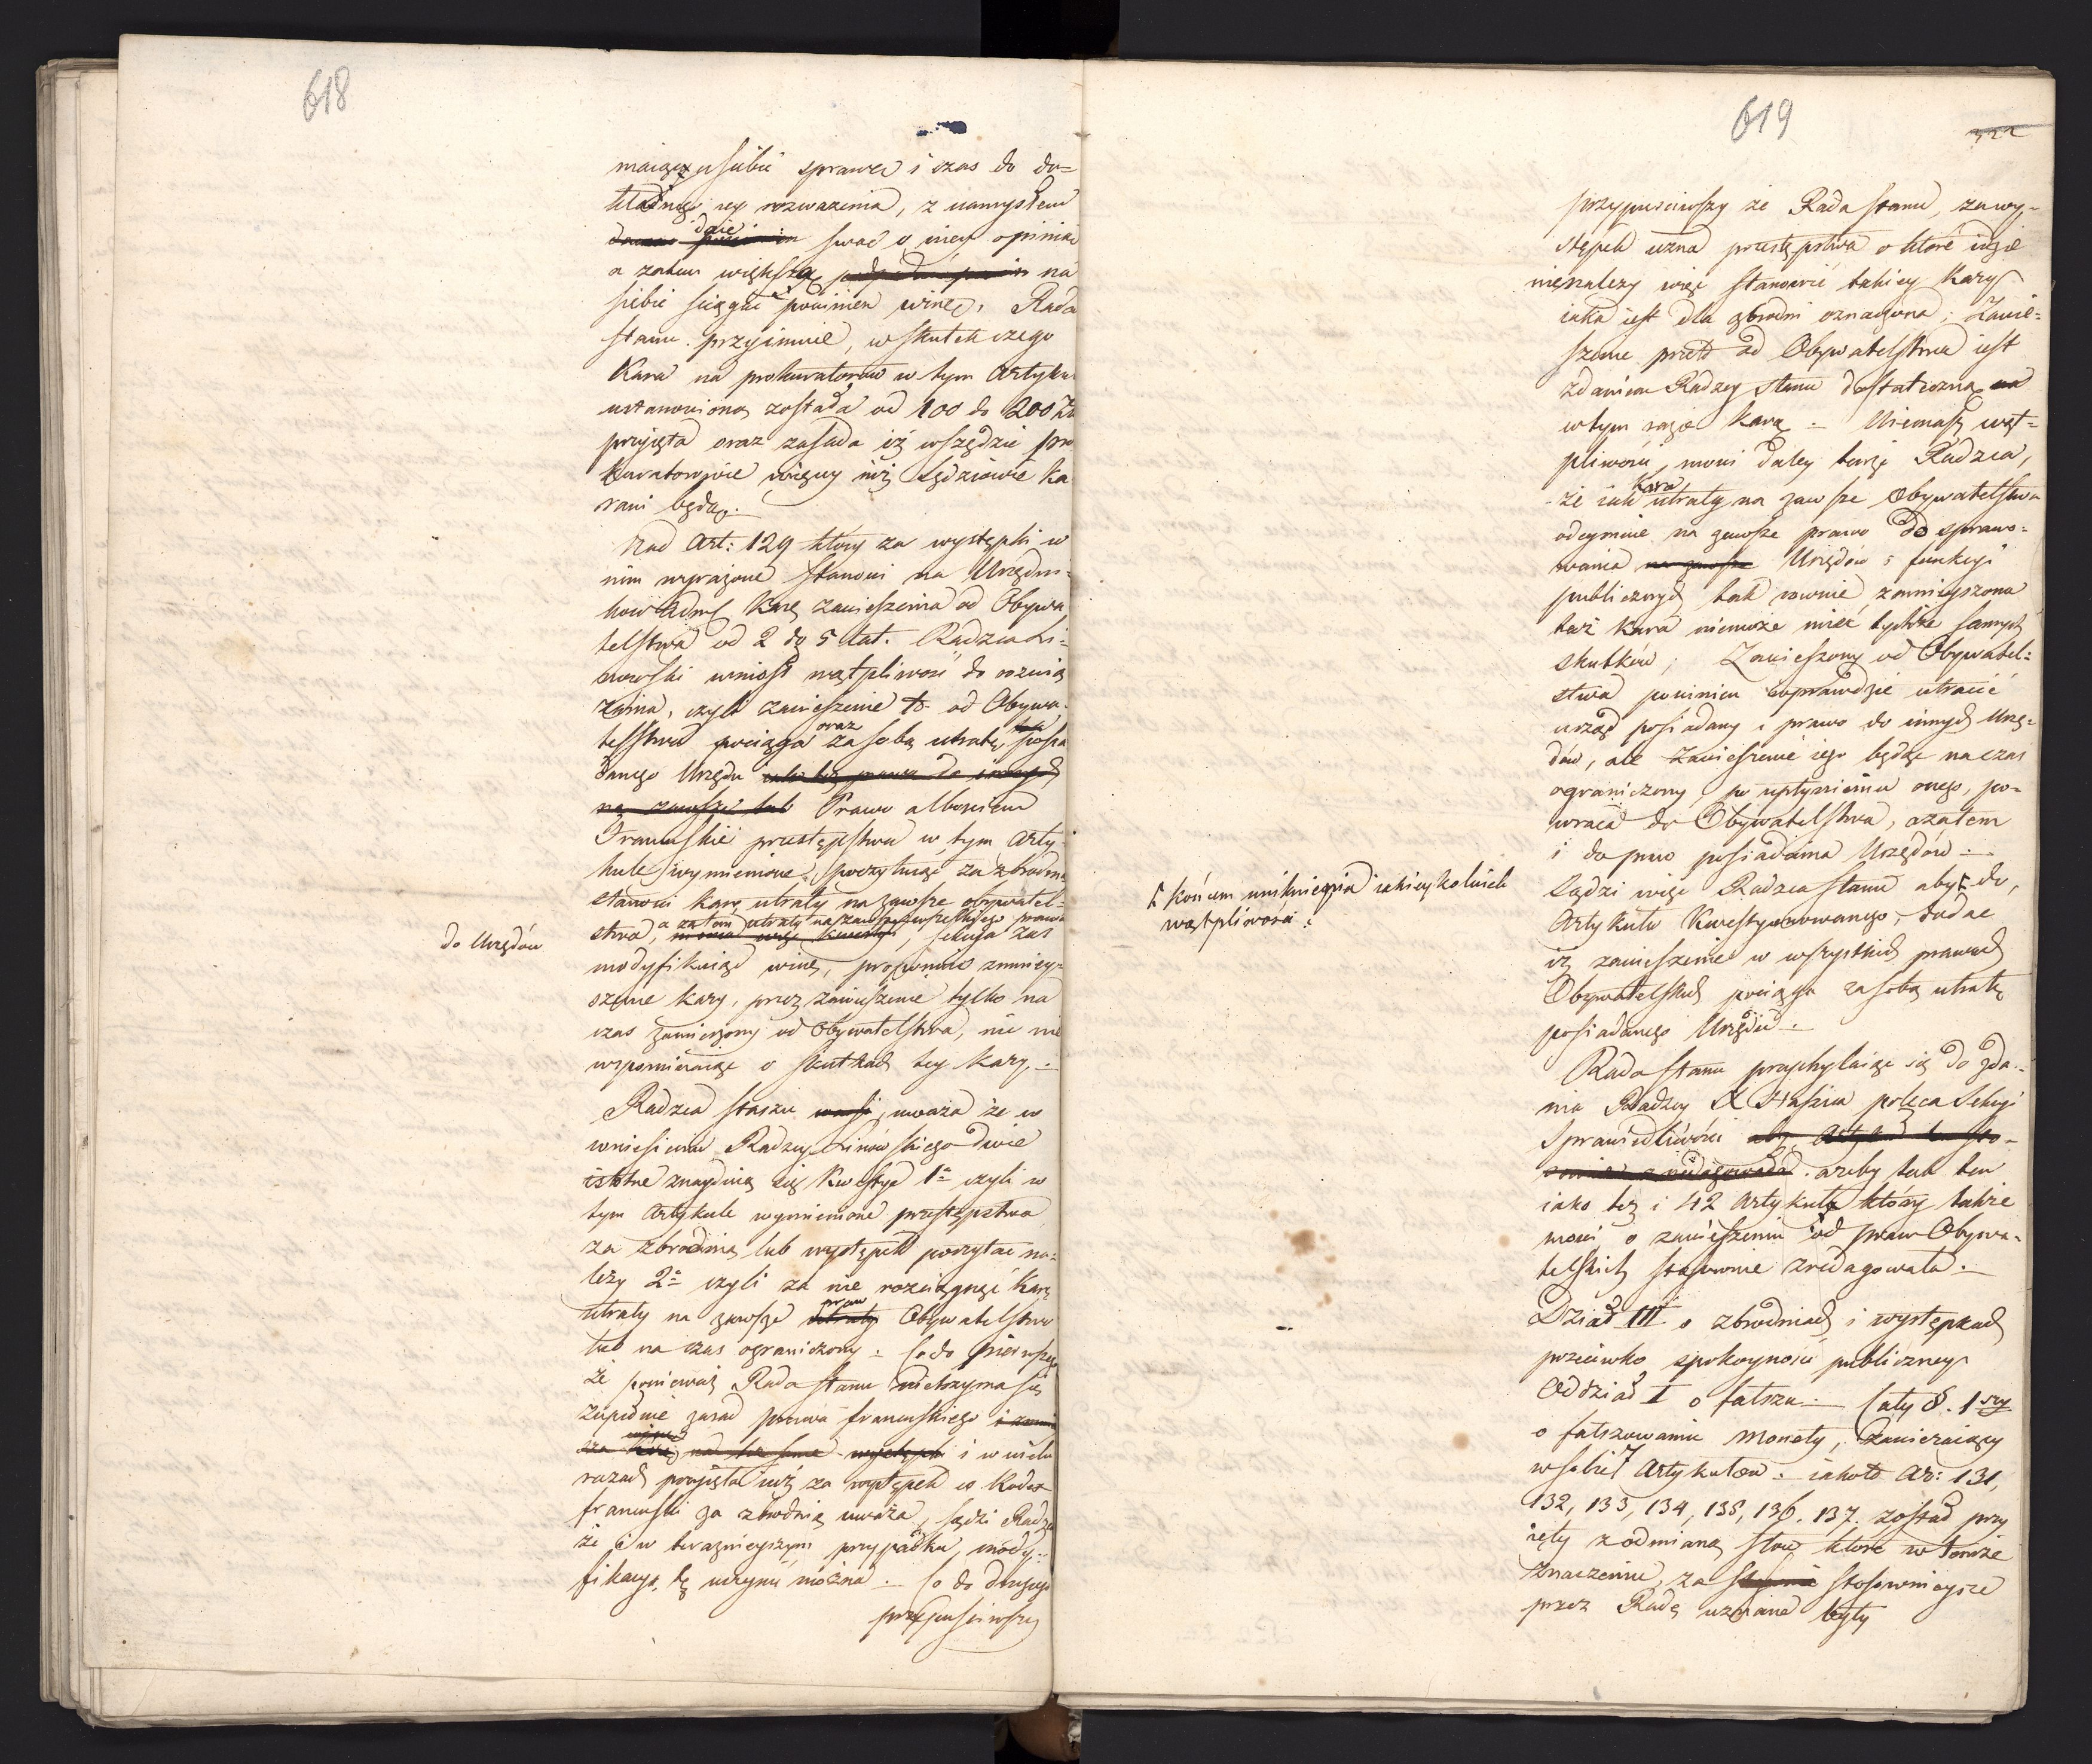 618
maiący u siebie sprawę i czas do do=
kładnego iey rozważenia, z namysłem
daie swoę o niey opinią
a zatem większą na
siebie ściągać powinien winę, Rada
Stanu przyimuie, w skutek czego
Kara na prokuratorów w tym Artyku
ustanowioną została od 100 do 200 Zł
przyięta oraz zasada iż wszędzie pro
kuratorowie więcey niż Sędziowie ka
rani będą.
Nad Art: 129 który za występki w
nim wyrażone stanowi na Urzędni=
ków Adm: karę zawieszenia od Obywa
telstwa od 2 do 5 lat. Radzca Li=
nowski wniósł wątpliwość do rozwią
zania, czyli zawieszenie to od Obywa=
telstwa pociąga oraz za sobą utratę posia
danego Urzędu iako też prawa do innych
na zawsze lub Prawo albowiem
Francuskie przestępstwa w tym Arty=
kule wymienione, poczytuiąc za zbrodnię
stanowi karę utraty na zawsze obywatel=
stwa, a zatem utraty na zawsze wszelkiego prawa
do Urzędów
, Sekcya zaś
modyfikuiąc winę, proponuie zmniey=
szenie kary, przez zawieszenie tylko na
czas zamierzony od Obywatelstwa, nic nie
wspominaiąc o skutkach tey kary.
Radzca Staszic uważa że w
wniesieniu Radzcy Linowskiego dwie
istotne znayduią się kwestye 1º czyli w
tym Artykule wymienione przestępstwa
za zbrodnię lub występek poczytać na=
leży 2º czyli za nie rozciągnąć karę
utraty na zawsze praw Obywatelstwa
lub na czas ograniczony. Co do pierwszego
że ponieważ Rada Stanu nietrzyma się
zupełnie zasad prawa francuskiego
i w wielu
razach przyięła iuż za występek co Kodex
francuski za zbrodnię uważa, sądzi Radzca
że i w teraznieyszym przypadku, mody=
fikacyą tę uczynić można. Co do drugiego
przypuściwszy
619
przypuściwszy że Rada Stanu, za wy=
stępek uzna przestępstwa o które idzie
nienależy więc stanowić takiey kary
iaka iest dla zbrodni oznaczona; Zawie=
szenie przeto od Obywatelstwa iest
zdaniem Radzcy Stanu dostateczną
w tym razie karą. Niemasz wąt=
pliwości, mówi daley tenże Radzca,
że iak kara utraty na zawsze Obywatelstwa
odeymuie na zawsze prawo do sprawo=
wania na zawsze Urzędów i funkcyi
publicznych tak równie zmnieyszona
też kara niemoże mieć tychże samych
skutków; Zawieszony od Obywatel=
stwa powinien wprawdzie utracić
urząd posiadany i prawo do innych Urzę=
dów, ale zawieszenie iego będąc na czas
ograniczony po upłynieniu onego, po=
wraca do Obywatelstwa, a zatem
i do praw posiadania Urzędów.
Sądzi więc Radzca Stanu aby do
Ⱶ końcem uniknienia iakieykolwiek
wątpliwości:
Artykułu kwestyonowanego, dodać
iż zawieszenie w wszystkich prawach
Obywatelskich pociąga za sobą utratę
posiadanego Urzędu.
Rada Stanu przychylaiąc się do zda=
nia Radzcy X Staszica poleca Sekcyi
Sprawiedliwości aby Artykuł ten sto=
sownie zredagowała. ażeby tak ten
iako też i 42 Artykuł który także
mówi o zawieszeniu od praw Obywa=
telskich stosownie zredagowała.
Dział III o zbrodniach i występkach
przeciwko spokoyności publiczney
Oddział I o fałszu. Cały §. 1szy
o fałszowaniu Monety, zawieraiący
w sobie 7 Artykułów: iakoto Ar: 131,
132, 133, 134, 135, 136, 137. został przy
ięty z odmianą słów które w temże
znaczeniu, za stosownieysze
przez Radę uznane były